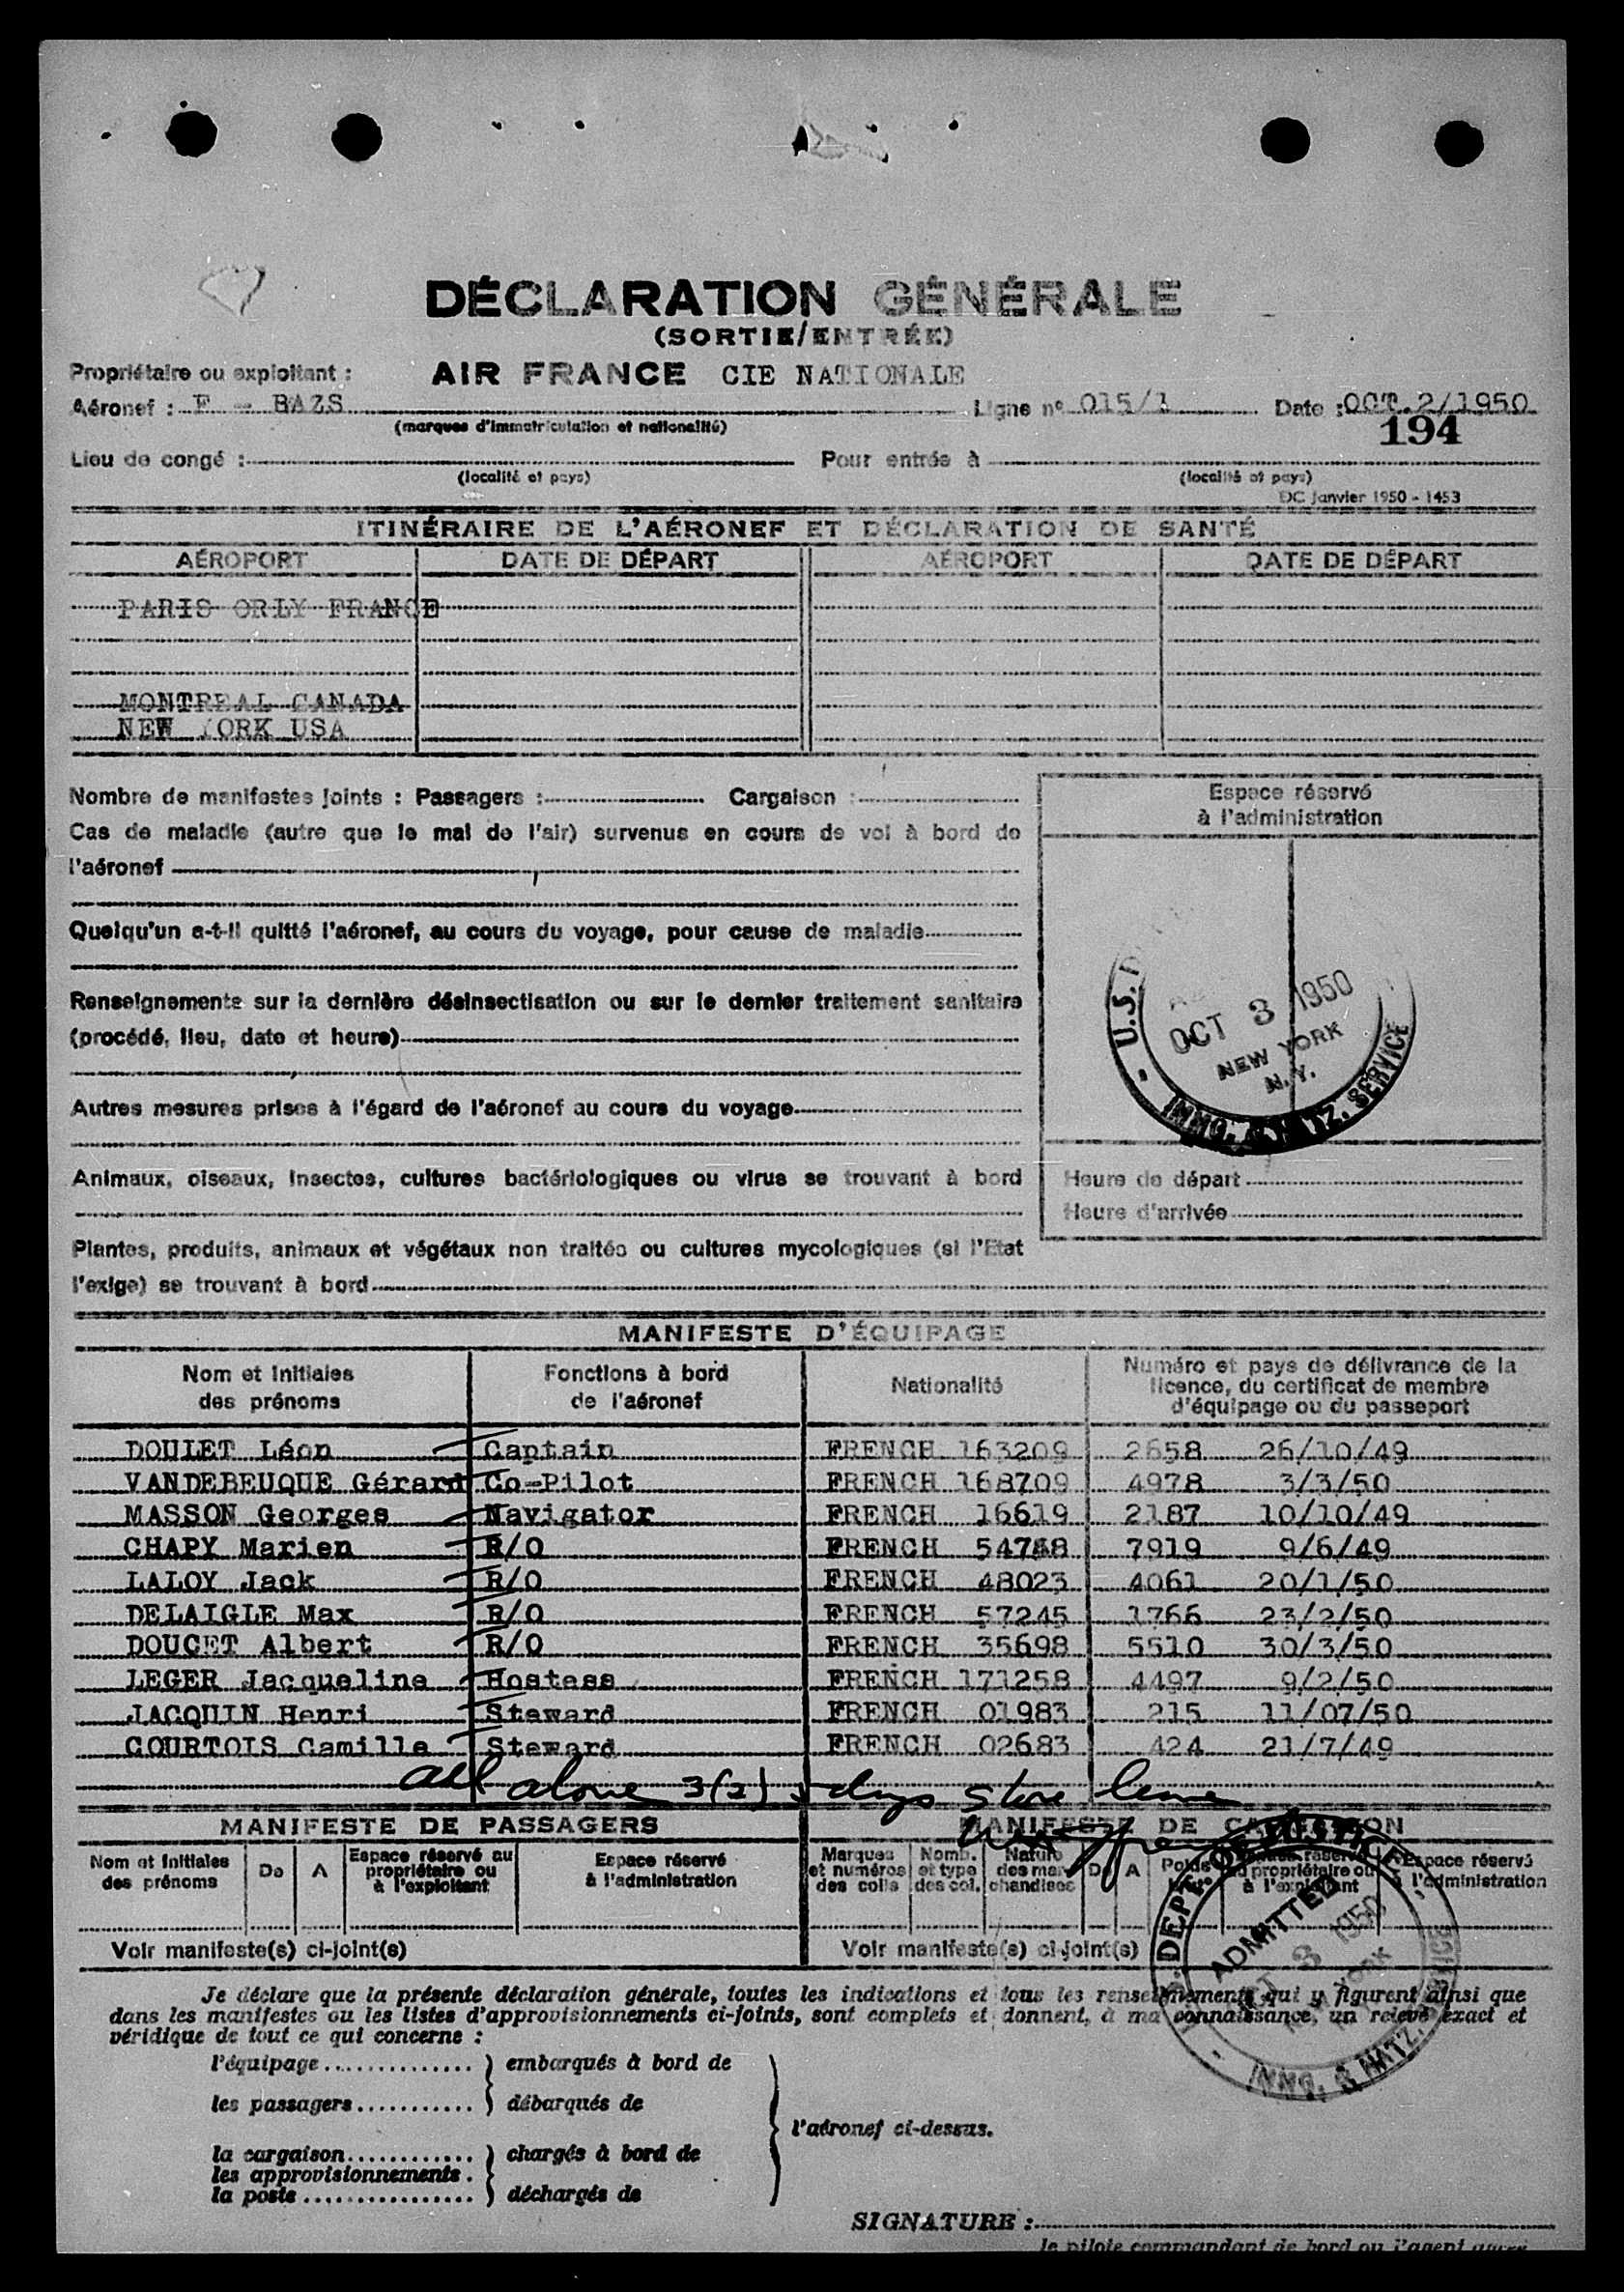 DÉCLARATION GÉNÉRALE
(SORTIE/ENTRÉE)
Propriétaire ou exploitant : AIR FRANCE CIE NATIONALE
Aéronef : F - BAZS Ligne nº 015/1 Date : OCT.2/1950
(marques d'immatriculation et nationalité)
194
Lieu de congé : Pour entrée à
(localité et pays) (localité et pays)
DC Janvier 1950 - 1453
ITINÉRAIRE DE L'AÉRONEF ET DÉCLARATION DE SANTÉ
AÉROPORT DATE DE DÉPART AÉROPORT DATE DE DÉPART
PARIS ORLY FRANCE
MONTREAL CANADA
NEW YORK USA
Nombre de manifestes joints : Passagers : Cargaison :
Cas de maladie (autre que le mal de l'air) survenus en cours de vol à bord de
l'aéronef
Quelqu'un a-t-il quitté l'aéronef, au cours du voyage, pour cause de maladie
Renseignements sur la dernière désinsectisation ou sur le dernier traitement sanitaire
(procédé, lieu, date et heure)
Autres mesures prises à l'égard de l'aéronef au cours du voyage
Animaux, oiseaux, insectes, cultures bactériologiques ou virus se trouvant à bord
Plantes, produits, animaux et végétaux non traités ou cultures mycologiques (si l'Etat
l'exige) se trouvant à bord
Espace réservé
à l'administration
U.S.
OCT 3 1950
NEW YORK
N.Y.
IMMG. & NATZ. SERVICE
Heure de départ
Heure d'arrivée
MANIFESTE D'ÉQUIPAGE
Nom et initiales des prénoms Fonctions à bord de l'aéronef Nationalité Numéro et pays de délivrance de la licence, du certificat de membre d'équipage ou du passeport
DOULET Léon Captain FRENCH 163209 2658 26/10/49
VANDEBEUQUE Gérard Co-Pilot FRENCH 168709 4978 3/3/50
MASSON Georges Navigator FRENCH 16619 2187 10/10/49
CHAPY Marien R/O FRENCH 54748 7919 9/6/49
LALOY Jack R/O FRENCH 48023 4061 20/1/50
DELAIGLE Max R/O FRENCH 57245 1766 23/2/50
DOUCET Albert R/O FRENCH 35698 5510 30/3/50
LEGER Jacqueline Hostess FRENCH 171258 4497 9/2/50
JACQUIN Henri Steward FRENCH 01983 215 11/07/50
COURTOIS Camille Steward FRENCH 02683 424 21/7/49
all above 3(2) days shore leave
MANIFESTE DE PASSAGERS MANIFESTE DE CARGAISON
Nom et initiales des prénoms De A Espace réservé au propriétaire ou à l'exploitant Espace réservé à l'administration
Marques et numéros des colis Nomb. et type des col. Nature des marchandises De A Poids Espace réservé au propriétaire ou à l'exploitant Espace réservé à l'administration
Voir manifeste(s) ci-joint(s) Voir manifeste(s) ci-joint(s)
DEPT. OF JUSTICE
ADMITTED
OCT 3 1950
NEW YORK
IMMG. & NATZ. SERVICE
Je déclare que la présente déclaration générale, toutes les indications et tous les renseignements qui y figurent ainsi que
dans les manifestes ou les listes d'approvisionnements ci-joints, sont complets et donnent, à ma connaissance, un relevé exact et
véridique de tout ce qui concerne :
l'équipage.............. ) embarqués à bord de
les passagers........... ) débarqués de
l'aéronef ci-dessus.
la cargaison............ ) chargés à bord de
les approvisionnements .
la poste ................ ) déchargés de
SIGNATURE :
le pilote commandant de bord ou l'agent